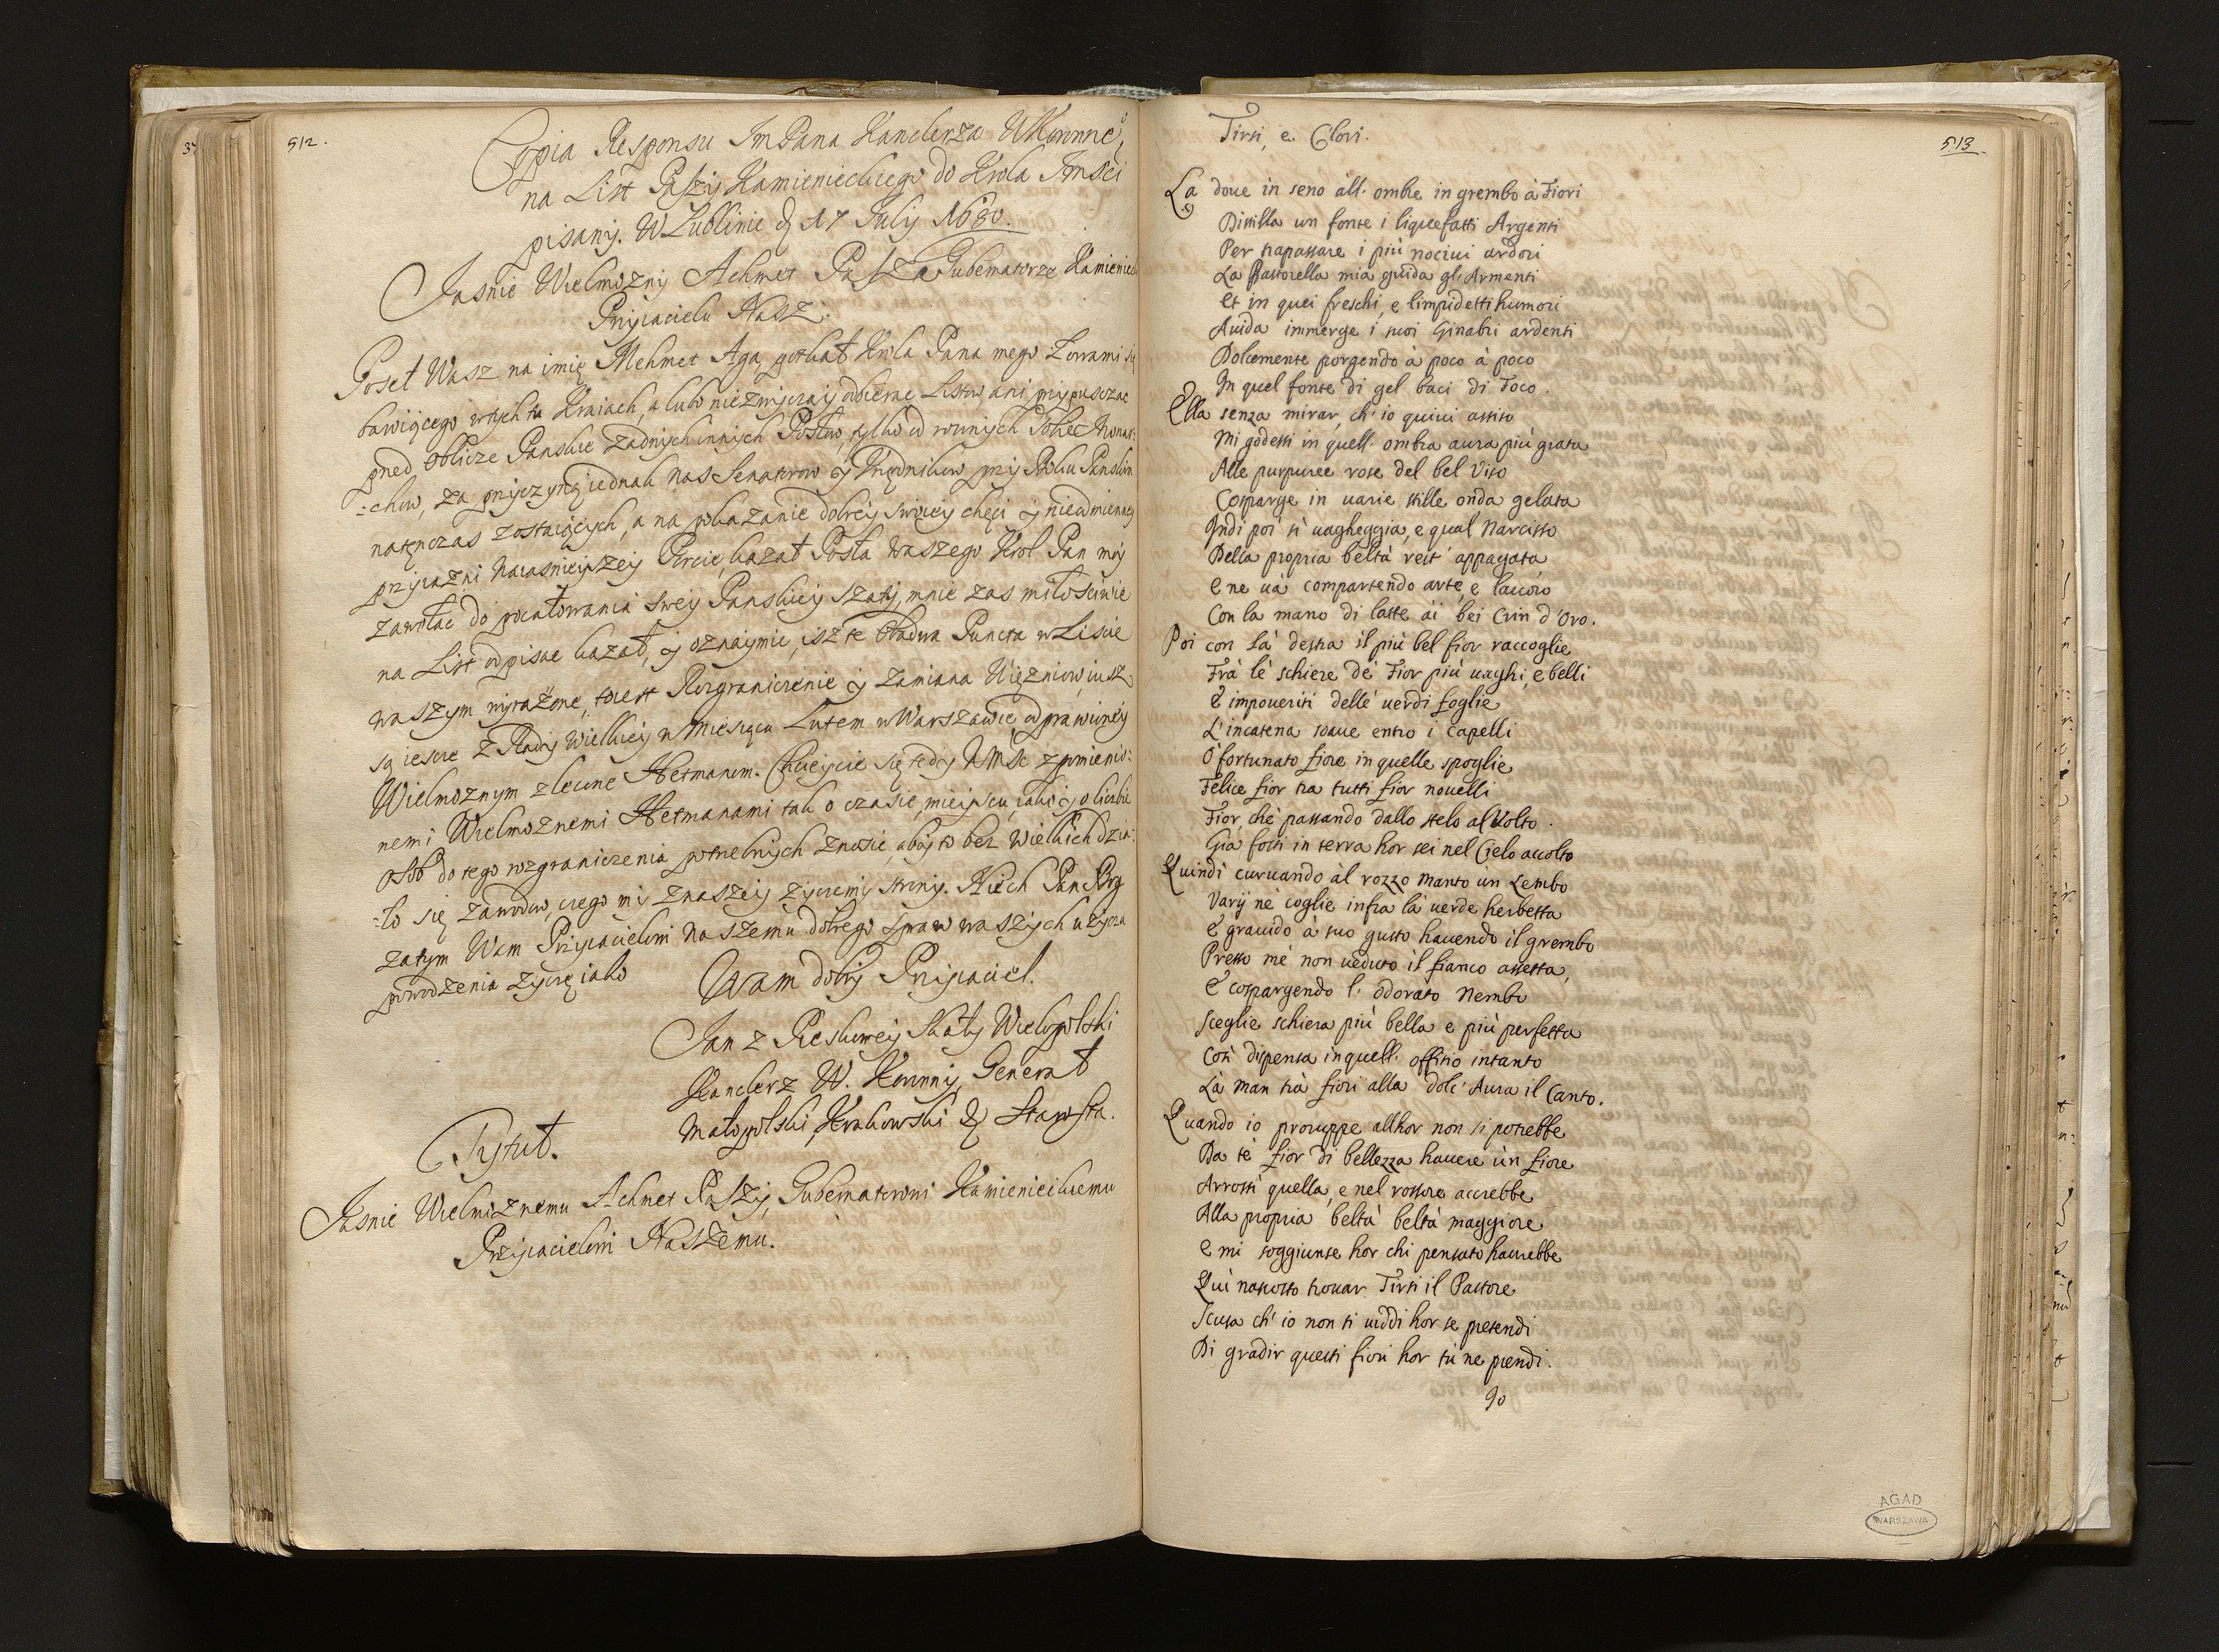 512.
Copia Responsu ImPana Kanclerza WKoronne°
na List Paszy Kamienieckiego do Krola Jmsci
pisany. W Lublinie d 17 July 1680.
Jasnie Wielmozny Achmet Pasza Gubernatorze Kamieniec
Przyiacielu Nasz.
Poseł Wasz na imię Mehmet Aga, potkał Krola Pana mego Łowami się
bawiącego wtych tu Kraiach, a lubo niezwyczaiy odbierac Listow, ani przypuszczac
przed oblicze Panskie zadnych innych Posłow, tylko od rownych Sobie Monar:
:chow, za przyczyną iednak nas Senatorow y Urzędnikow przy Boku Panskim
natenczas zostaiących, a na pokazanie dobrey swoiey chęci y nieodmienney
przyiazni naiasnieyszey Porcie, kazał Posła waszego Krol Pan moy
zawołac do pocałowania swey Panskiey szaty, mnie zas miłosciwie
na List odpisac kazał, y oznaymic, isz te obadwa Puncta w Liscie
waszym wyrażone, toiest Rozgraniczenie y Zamiana Więzniow, iusz
są iescze z Rady Wielkiey w Miesiącu Lutem w Warszawie odprawioney
Wielmoznym zlecone Hetmanom. Chcieycie się tedy WMsc z pomienio:
nemi Wielmoznemi Hetmanami tak o czasie, mieyscu, iako y o liczbie
osob do tego rozgraniczenia potrzebnych znosic, aby to bez wielkich dzia:
:ło się zawodow, czego my znaszey zyczemy strony. Niech Pan Bog
zatym Wam Przyiacielowi naszemu dobrego spraw waszych uzycza
powodzenia zyczę iako
Wam dobry Przyiaciel.
Jan z Pieskowey Skały Wielopolski
Kanclerz W. Koronny, Generał
Małopolski, Krakowski & Starosta.
Tytuł.
Jasnie Wielmoznemu Achmet Paszy, Gubernatorowi Kamienieckiemu
Przyiacielowi Naszemu.
513
Tirsi, e Clori.
La doue in seno all. ombre in grembo à Fiori
Distilla un fonte i liquefatti Argenti
Per trapassare i più nociui ardori
La Pastorella mia guida gl. Armenti
Et in quei freschi, e limpidetti humori
Auida immerge i suoi Cinabri ardenti
Dolcemente porgendo à poco à poco
In quel fonte di gel baci di Foco.
Ella senza mirar, ch' io quiui assiso
Mi godessi in quell. ombra aura più grata
Alle purpuree rose del bel Viso
Cosparge in uarie stille onda gelata
Indi poi si uagheggia, e qual Narcisso
Della propria beltà rest' appagata
E ne uà compartendo arte, e lauoro
Con la mano di latte ai bei Crin d'oro.
Poi con la destra il più bel fior raccoglie
Frà le schiere de Fior più uaghi, e belli
E impoueriti delle uerdi foglie
L'incatena soaue entro i Capelli
O fortunato fiore in quelle spoglie
Felice fior tra tutti fior nouelli
Fior, che passando dallo stelo al Volto.
Già fosti in terra hor sei nel Cielo accolto
Quindi curuando al rozzo manto un Lembo
Varij ne coglie infra la uerde herbetta
E grauido à suo gusto hauendo il grembo
Presso me non ueduto il fianco assetta,
E cospargendo l. odorato Nembo
Sceglie schiera più bella e più perfetta
Così dispensa in quell. offitio intanto
La man trà fiori alla dolc' Aura il Canto.
Quando io proruppe allhor non si potrebbe
Da te fior di bellezza hauere un fiore
Arrossì quella, e nel rossore accrebbe
Alla propria beltà beltà maggiore
E mi soggiunse hor chi pensato haurebbe
Qui nascosto trouar Tirsi il Pastore
Scusa ch' io non ti uiddi hor se pretendi
Di gradir questi fiori hor tù ne prendi.
Io
AGAD
WARSZAWA